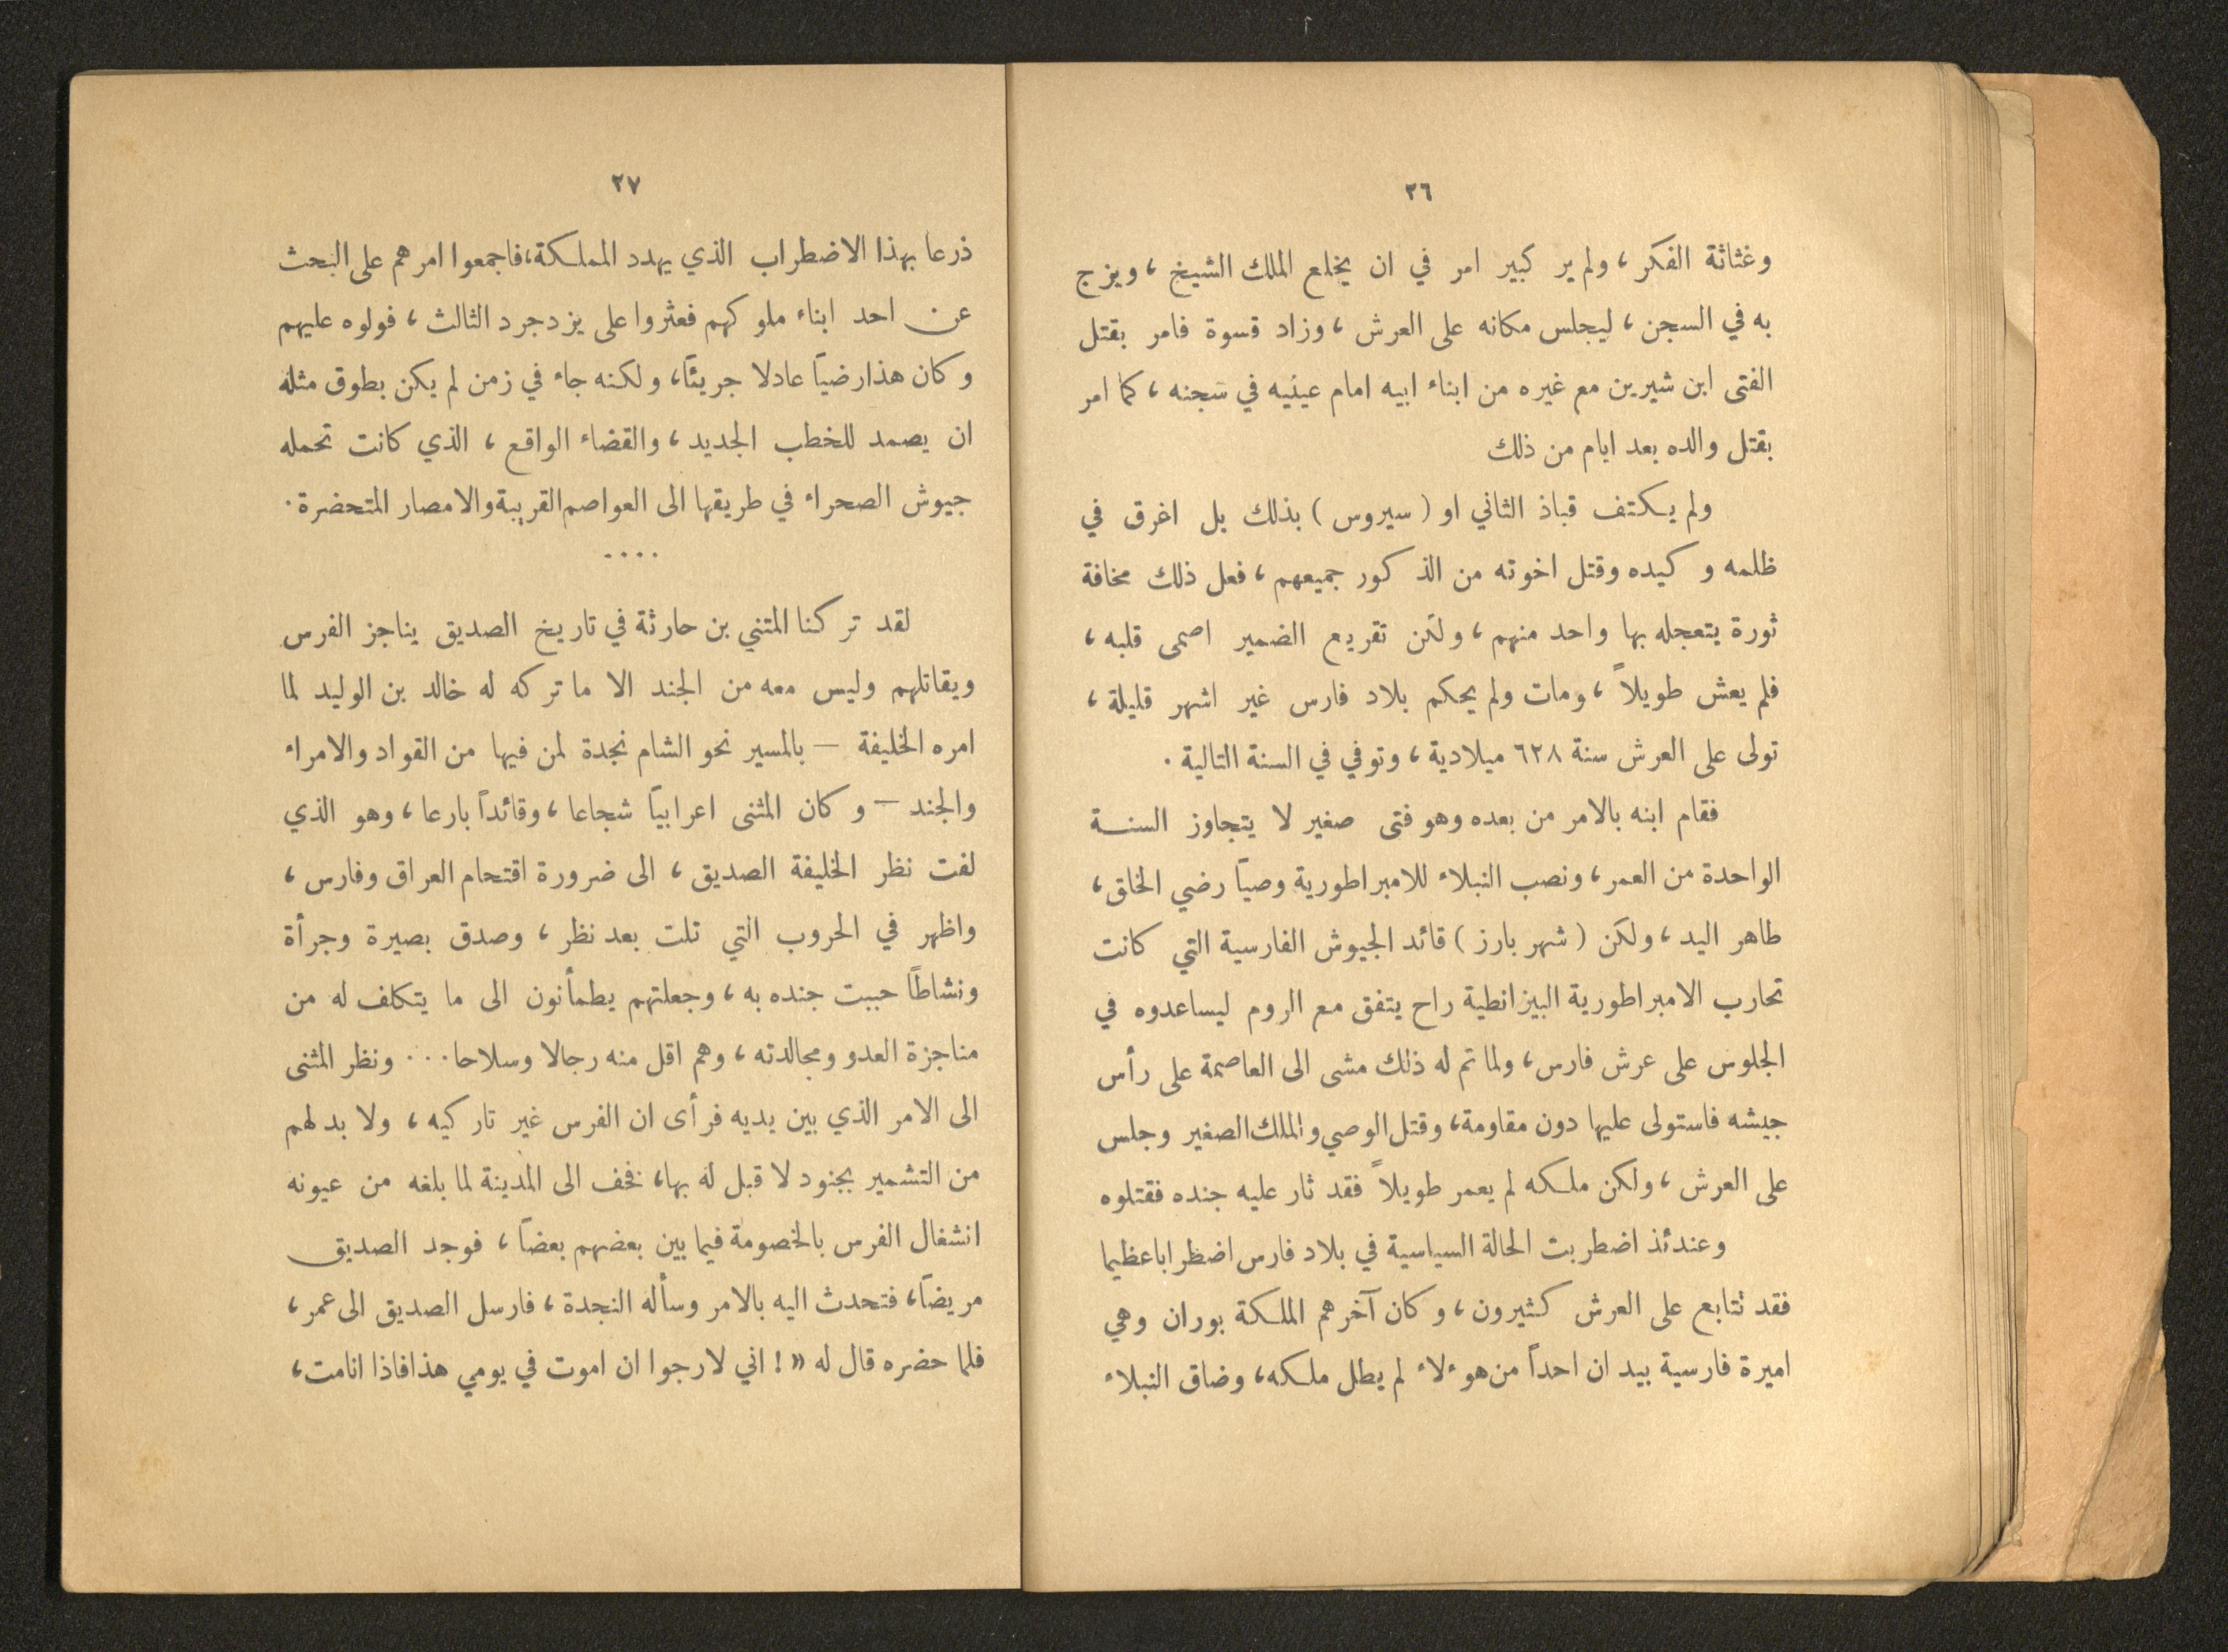 ٢٦
وغثاثة الفكر، ولم ير كبير امر في ان يخلع الملك الشيخ، ويزج
به في السجن، ليجلس مكانه على العرش، وزاد قسوة فامر بقتل
الفتى ابن شيرين مع غيره من ابناء ابيه امام عينيه في سجنه، كما امر
بقتل والده بعد ايام من ذلك
ولم يكتف قباذ الثاني او (سيروس) بذلك بل اغرق في
ظلمه وكيده وقتل اخوته من الذكور جميعهم، فعل ذلك مخافة
ثورة يتعجله بها واحد منهم، ولكن تقريع الضمير اصمى قلبه،
فلم يعش طويلاً، ومات ولم يحكم بلاد فارس غير اشهر قليلة،
تولى على العرش سنة ٦٢٨ ميلادية، وتوفي في السنة التالية.
فقام ابنه بالامر من بعده وهو فتى صغير لا يتجاوز السنة
الواحدة من العمر، ونصب النبلاء للامبراطورية وصياً رضي الخاق،
طاهر اليد، ولكن (شهر بارز) قائد الجيوش الفارسية التي كانت
تحارب الامبراطورية البيزانطية راح يتفق مع الروم ليساعدوه في
الجلوس على عرش فارس، ولما تم له ذلك مشى الى العاصمة على رأس
جيشه فاستولى عليها دون مقاومة، وقتل الوصي والملك الصغير وجلس
على العرش، ولكن ملكه لم يعمر طويلاً فقد ثار عليه جنده فقتلوه
وعندئذ اضطربت الحالة السياسية في بلاد فارس اضطرابا عظيما
فقد تتابع على العرش كثيرون، وكان آخرهم الملكة بوران وهي
اميرة فارسية بيد ان احداً من هوءلاء لم يطل ملكه، وضاق النبلاء
٢٧
ذرعا بهذا الاضطراب الذي يهدد المملكة، فاجمعوا امرهم على البحث
عن احد ابناء ملوكهم فعثروا على يزدجرد الثالث، فولوه عليهم
وكان هذا رضياً عادلا جريئاً، ولكنه جاء في زمن لم يكن بطوق مثله
ان يصمد للخطب الجديد، والقضاء الواقع، الذي كانت تحمله
جيوش الصحراء في طريقها الى العواصم القريبة والامصار المتحضرة.
....
لقد تركنا المتني بن حارثة في تاريخ الصديق يناجز الفرس
ويقاتلهم وليس معه من الجند الا ما تركه له خالد بن الوليد لما
امره الخليفة — بالمسير نحو الشام نجدة لمن فيها من القواد والامراء
والجند — وكان المثنى اعرابياً شجاعا، وقائداً بارعا، وهو الذي
لفت نظر الخليفة الصديق، الى ضرورة اقتحام العراق وفارس،
واظهر في الحروب التي تلت بعد نظر، وصدق بصيرة وجرأة
ونشاطاً حببت جنده به، وجعلتهم يطمأنون الى ما يتكلف له من
مناجزة العدو ومجالدته، وهم اقل منه رجالا وسلاحا... ونظر المثنى
الى الامر الذي بين يديه فرأى ان الفرس غير تاركيه، ولا بد لهم
من التشمير بجنود لا قبل له بها، فخف الى المدينة لما بلغه من عيونه
انشغال الفرس بالخصومة فيما بين بعضهم بعضاً، فوجد الصديق
مريضاً، فتحدث اليه بالامر وسأله النجدة، فارسل الصديق الى عمر،
فلما حضره قال له «! اني لارجوا ان اموت في يومي هذا فاذا انامت،